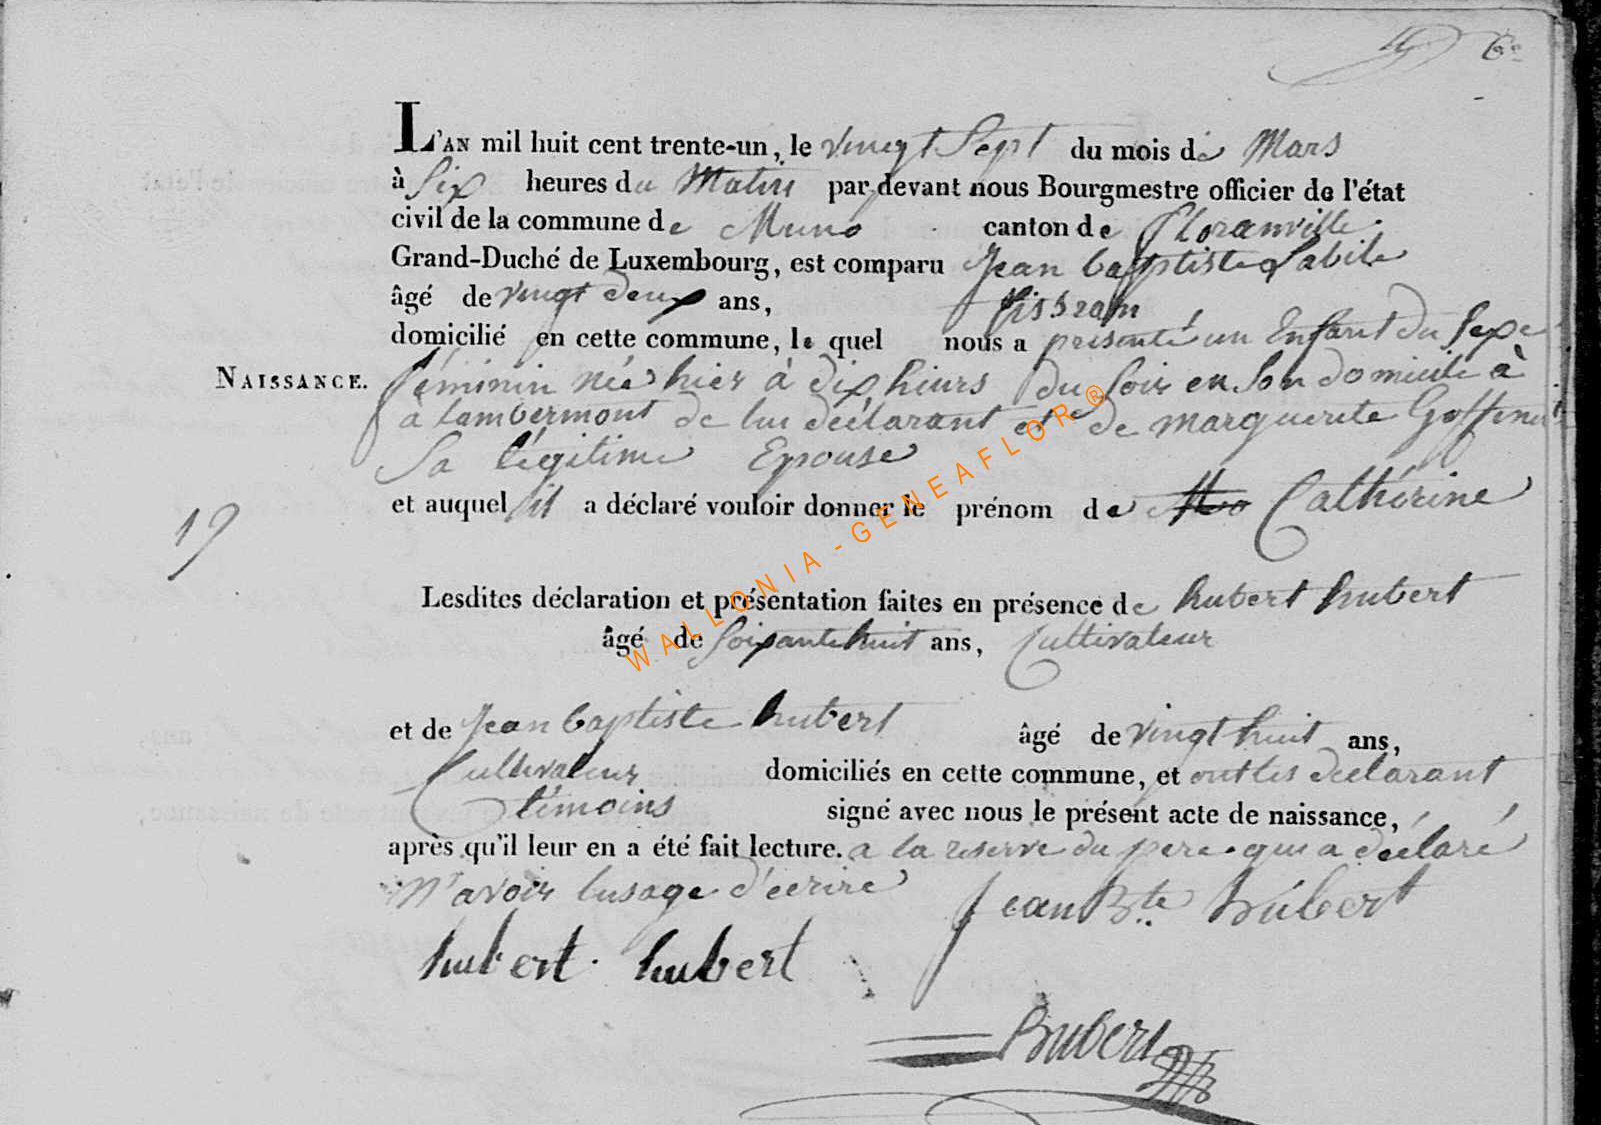 6e
L'AN mil huit cent trente-un, le vingt Sept du mois de Mars
à Six heures du Matin par devant nous Bourgmestre officier de l'état
civil de la commune de Muno canton de Floranville
Grand-Duché de Luxembourg, est comparu Jean baptiste Labile
âgé de vingt deux ans, tisseran
domicilié en cette commune, le quel nous a présenté un Enfant du Sexe
NAISSANCE.
féminin née hier à dix hieurs du Soir en Son domicile à
a Lambermont de lui déclarant et de marguerite Goffinet
Sa légitime Epouse
et auquel il a déclaré vouloir donner le prénom de Cathérine
19
Lesdites déclaration et présentation faites en présence de hubert hubert
âgé de Soixante huit ans, Cultivateur
et de Jean baptiste hubert âgé de vingt huit ans,
Cultivateur domiciliés en cette commune, et ont les déclarant
témoins signé avec nous le présent acte de naissance,
après qu'il leur en a été fait lecture. a la reserve du pere qui a déclaré
N'avoir lusage d'écrire
Jean Bte hubert
hubert. hubert
Hubert
WALLONIA - GENEAFLOR ®